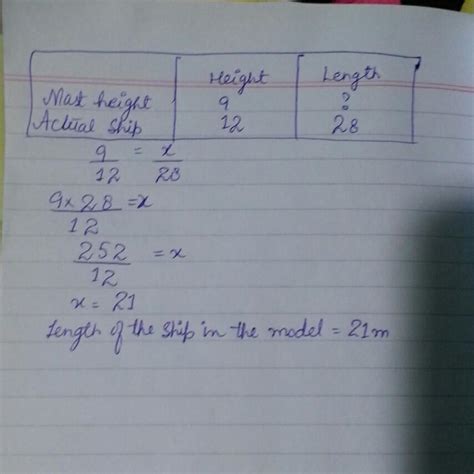 Height Length
Mast height 9 ?
Actual ship 12 28
9/12 = x/28
9x28/12 = x
252/12 = x
x = 21
Length of the ship in the model = 21m